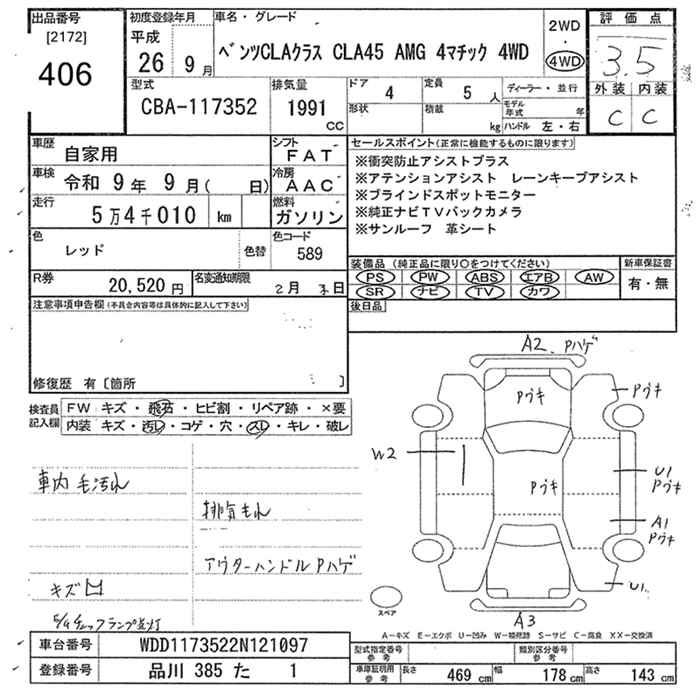 出品番号 初度登録年月 車名・グレード 評価点
[2172] 平成 2WD
406 26 9月 ベンツCLAクラス CLA45 AMG 4マチック 4WD ・ 3.5
4WD
型式 排気量 ドア 4 定員 5 人 ディーラー・並行 外装 内装
CBA-117352 1991 cc 形状 積載 kg モデル年式 年 C C
ハンドル 左・右
車歴 自家用 シフト FAT セールスポイント(正常に機能するものに限ります)
車検 令和 9年 9月( 日) 冷房 AAC ※衝突防止アシストプラス
※アテンションアシスト レーンキープアシスト
走行 5万4千010 km 燃料 ガソリン ※ブラインドスポットモニター
※純正ナビTVバックカメラ
色 レッド 色替 色コード 589 ※サンルーフ 革シート
装備品(純正品に限り○をつけてください) 新車保証書
R券 20,520円 名変通知期限 2月 日 PS PW ABS エアB AW 有・無
SR ナビ TV カワ
注意事項申告欄(不具合内容等は具体的に記入して下さい) 後日品
修復歴 有 [箇所 ]
A2 Pハゲ
検査員記入欄 FW キズ・飛石・ヒビ割・リペア跡・×要
内装 キズ・汚れ・コゲ・穴・スレ・キレ・破レ
Pウキ Pウキ
W2
車内 毛汚れ
Pウキ U1 Pウキ
排気もれ
A1 Pウキ
アウターハンドルPハゲ
キズ凹
U1
チェックランプ点灯
スペア
A3
A-キズ E-エクボ U-凹み W-補修跡 S-サビ C-腐食 XX-交換済
車台番号 WDD1173522N121097 型式指定番号 参考 類別区分番号 参考
登録番号 品川 385 た 1 車庫証明用 参考 長さ 469 cm 幅 178 cm 高さ 143 cm